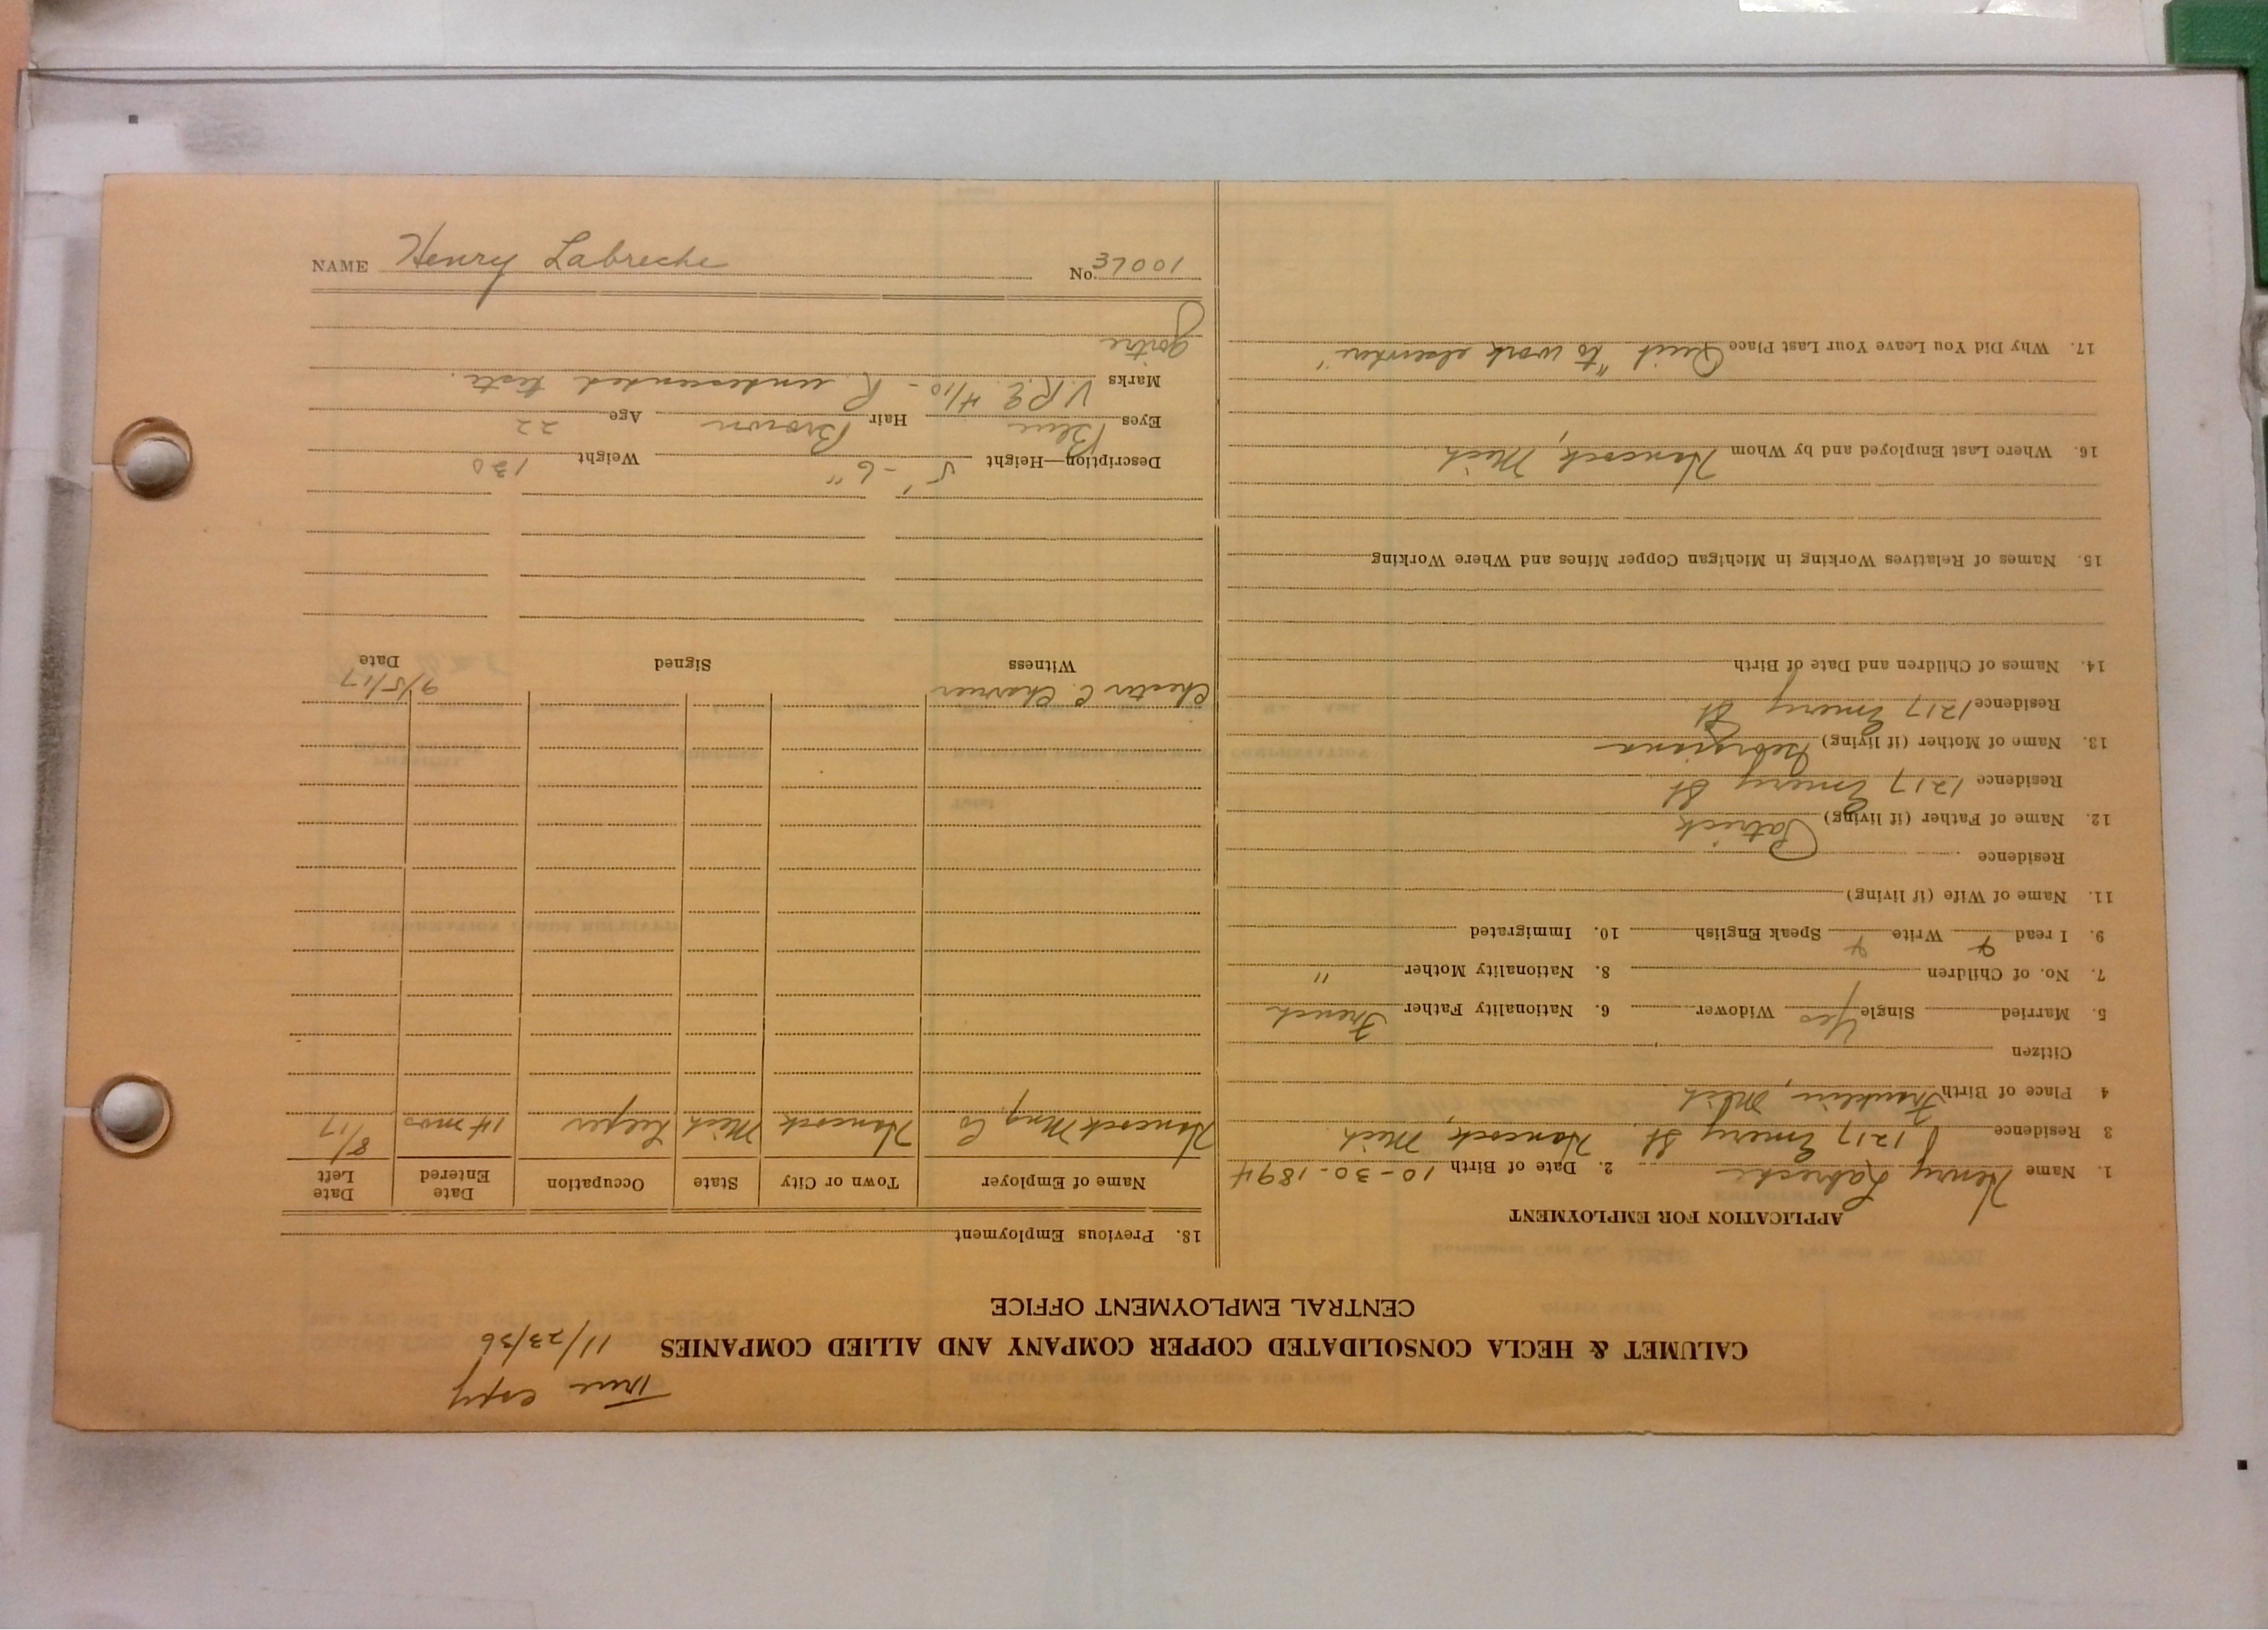 True copy
11/23/36
CALUMET & HECLA CONSOLIDATED COPPER COMPANY AND ALLIED COMPANIES
CENTRAL EMPLOYMENT OFFICE
APPLICATION FOR EMPLOYMENT
1. Name Henry Labreche 2. Date of Birth 10-30-1894
3 Residence 1217 Emery St. Hancock, Mich
4 Place of Birth Franklin, Mich
Citizen
5. Married Single Yes Widower 6. Nationality Father French
7. No. of Children 8. Nationality Mother "
9. I read Write Speak English 10. Immigrated
11. Name of Wife (if living)
Residence
12. Name of Father (if living) Patrick
Residence 1217 Emery St
13. Name of Mother (if living) Georgiana
Residence 1217 Emery St.
14. Names of Children and Date of Birth
15. Names of Relatives Working in Michigan Copper Mines and Where Working
16. Where Last Employed and by Whom Hancock, Mich
17. Why Did You Leave Your Last Place Quit "to work elsewhere"
18. Previous Employment
Name of Employer Town or City State Occupation Date Entered Date Left
Hancock Mng. Co Hancock Mich 14 mos 8/17
Chester C. 9/5/17
Witness Signed Date
Description—Height 5'-6" Weight 130
Eyes Blue Hair Brown Age 22
Marks V.R.E. 4/10 - R. undescended teste.
goitre
NAME Henry Labreche No. 37001